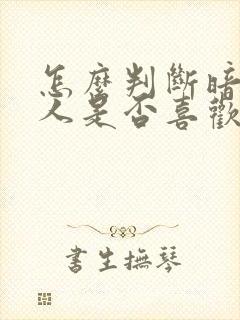 怎麼判斷暗
人是否喜歡
書生撫琴